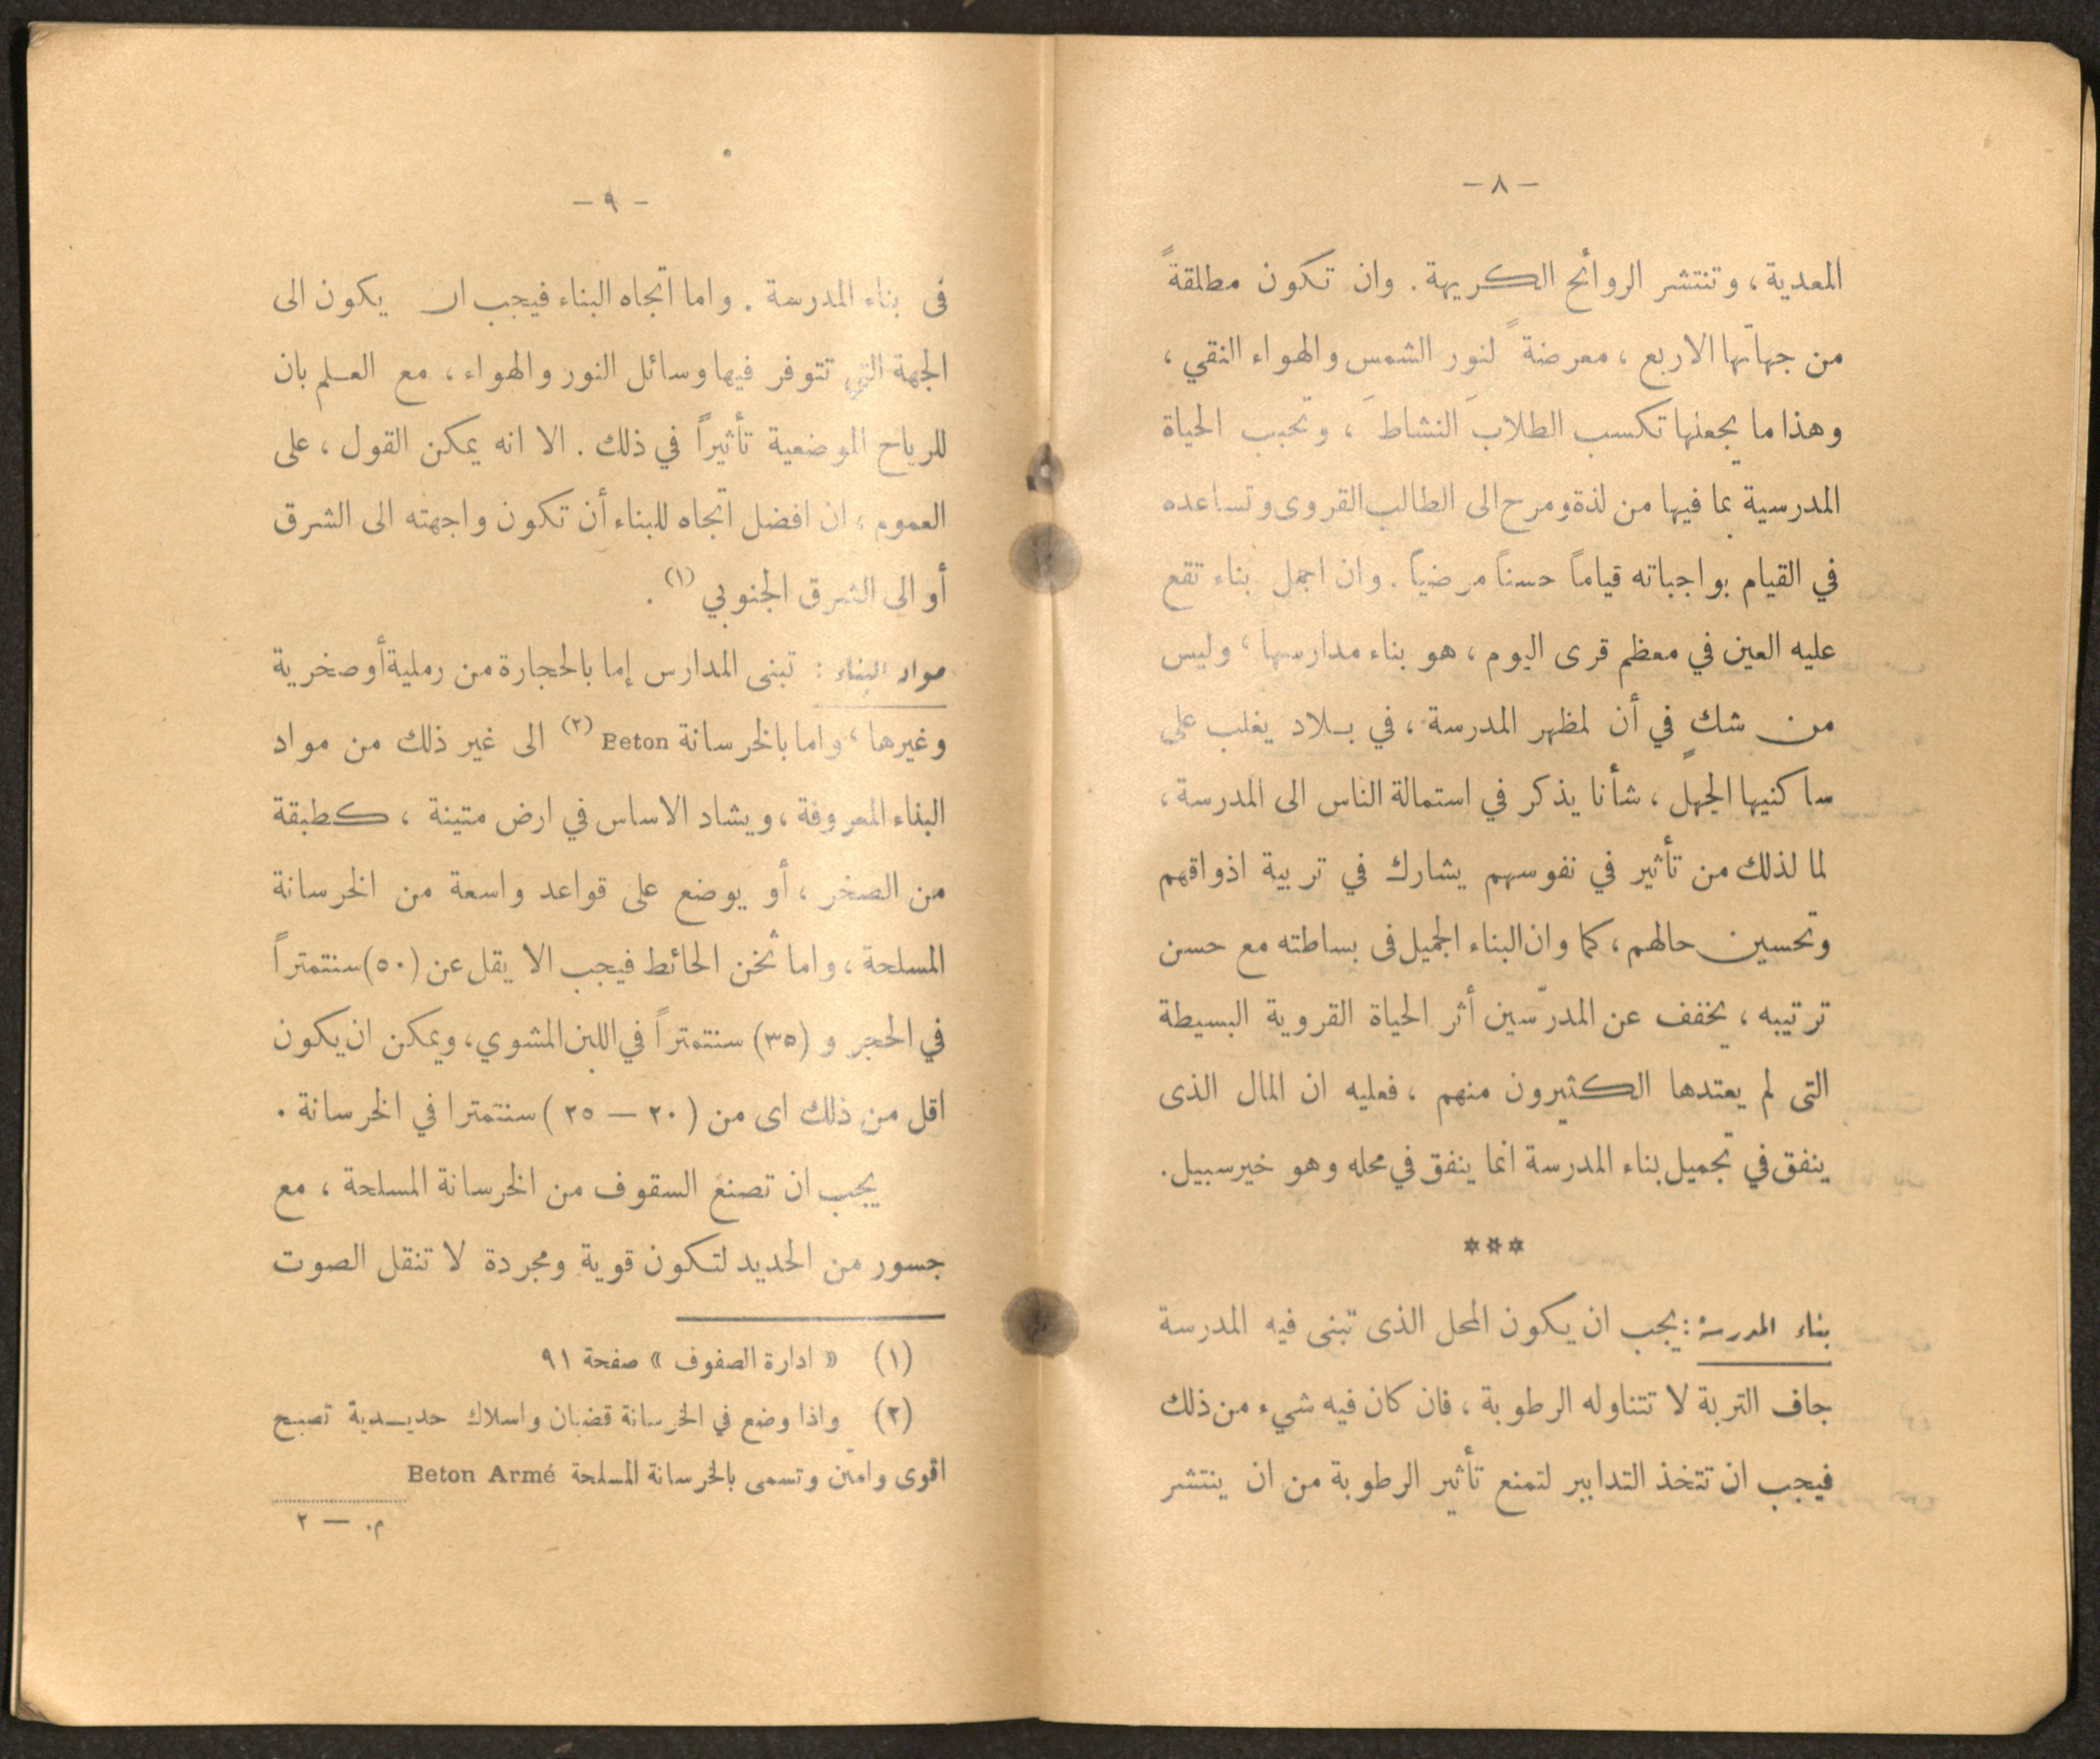 — ٨ —
المعدية ، وتنتشر الروائح الكريهة . وان تكون مطلقةً
من جهاتها الاربع ، معرضةً لنور الشمس والهواء النقي ،
وهذا ما يجعلها تكسب الطلابَ النشاطَ ، وتحبب الحياة
المدرسية بما فيها من لذة ومرح الى الطالب القروى وتساعده
في القيام بواجباته قياماً حسناً مرضياً . وان اجمل بناء تقع
عليه العين في معظم قرى اليوم ، هو بناء مدارسها ، وليس
من شكٍ في أن لمظهر المدرسة ، في بلاد يغلب على
ساكنيها الجهل ، شأنا يذكر في استمالة الناس الى المدرسة ،
لما لذلك من تأثير في نفوسهم يشارك في تربية اذواقهم
وتحسين حالهم ، كما وان البناء الجميل فى بساطته مع حسن
ترتيبه ، يخفف عن المدرّسين أثر الحياة القروية البسيطة
التى لم يعتدها الكثيرون منهم ، فعليه ان المال الذى
ينفق في تجميل بناء المدرسة انما ينفق في محله وهو خير سبيل .
***
بناء المدرسة : يجب ان يكون المحل الذى تبنى فيه المدرسة
جاف التربة لا تتناوله الرطوبة ، فان كان فيه شيء من ذلك
فيجب ان تتخذ التدابير لتمنع تأثير الرطوبة من ان ينتشر
— ٩ —
فى بناء المدرسة . واما اتجاه البناء فيجب ان يكون الى
الجهة التى تتوفر فيها وسائل النور والهواء ، مع العلم بان
للرياح الموضعية تأثيراً في ذلك . الا انه يمكن القول ، على
العموم ، ان افضل اتجاه للبناء أن تكون واجهته الى الشرق
أو الى الشرق الجنوبي (١) .
مواد البناء : تبنى المدارس إما بالحجارة من رملية أو صخرية
وغيرها ، واما بالخرسانة Beton (٢) الى غير ذلك من مواد
البناء المعروفة ، ويشاد الاساس في ارض متينة ، كطبقة
من الصخر ، أو يوضع على قواعد واسعة من الخرسانة
المسلحة ، واما ثخن الحائط فيجب الا يقل عن (٥٠) سنتمتراً
في الحجر و (٣٥) سنتمتراً في اللبن المشوي ، ويمكن ان يكون
اقل من ذلك اى من ( ٢٠ — ٢٥ ) سنتمترا في الخرسانة .
يجب ان تصنع السقوف من الخرسانة المسلحة ، مع
جسور من الحديد لتكون قوية ومجردة لا تنقل الصوت
(١) « ادارة الصفوف » صفحة ٩١
(٢) واذا وضع في الخرسانة قضبان واسلاك حديدية تصبح
اقوى وامتن وتسمى بالخرسانة المسلحة Beton Armé
م. — ٢